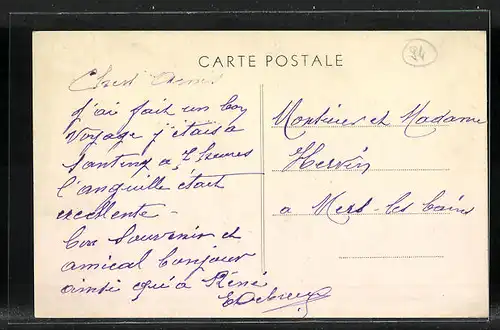 CARTE POSTALE
24
Chers Amis
j'ai fait un bon
voyage j'étais a
à 7 heures
l'anguille était
excellente -
Bon Souvenir et
amical bonjour
ainsi qu'a Réné
Monsieur et Madame
Hervin
a Mers-les bains